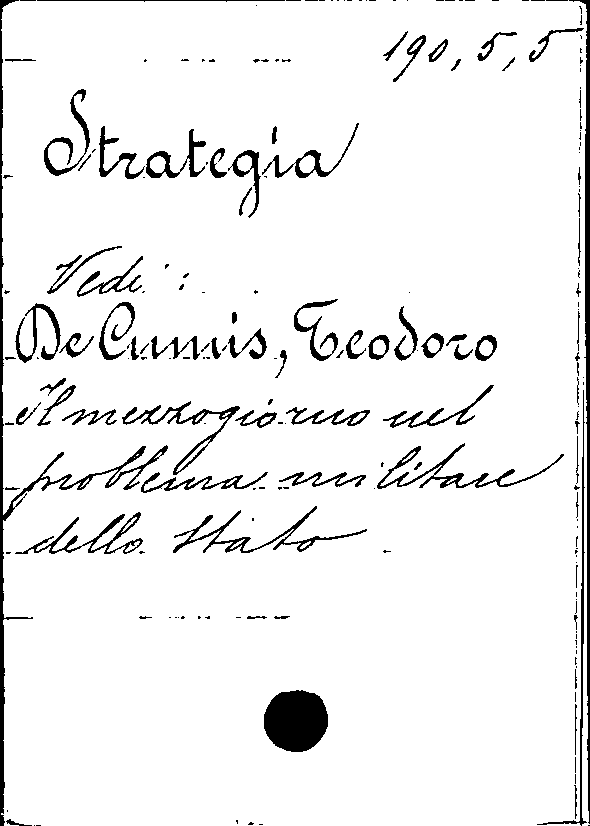 190, 5, 5
Strategia
Vedi:
De Cumis, Teodoro
Il mezzogiorno nel
problema militare
dello stato